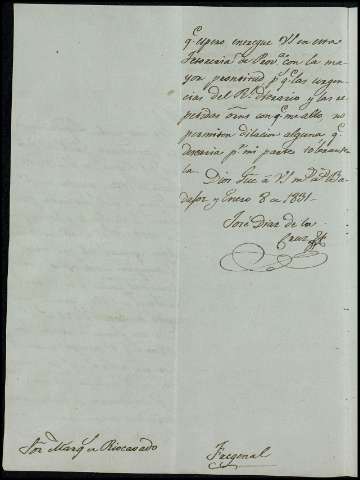 q.e espero entregue VS en esta
Tesoreria de Prov.a con la ma-
yor prontitud p.s q.e las urgen-
cias del R.l Erario y las re-
petidas órns con q.e me allo no
permiten dilacion alguna q.e
desearia p.r mi parte tolerarse-
la.
Dios gue á VS m.s a.s Ba-
dajoz y Enero 8 de 1831-
José Diaz de la
Cruz
Sor. Marq.s de Riocavado
Fregenal